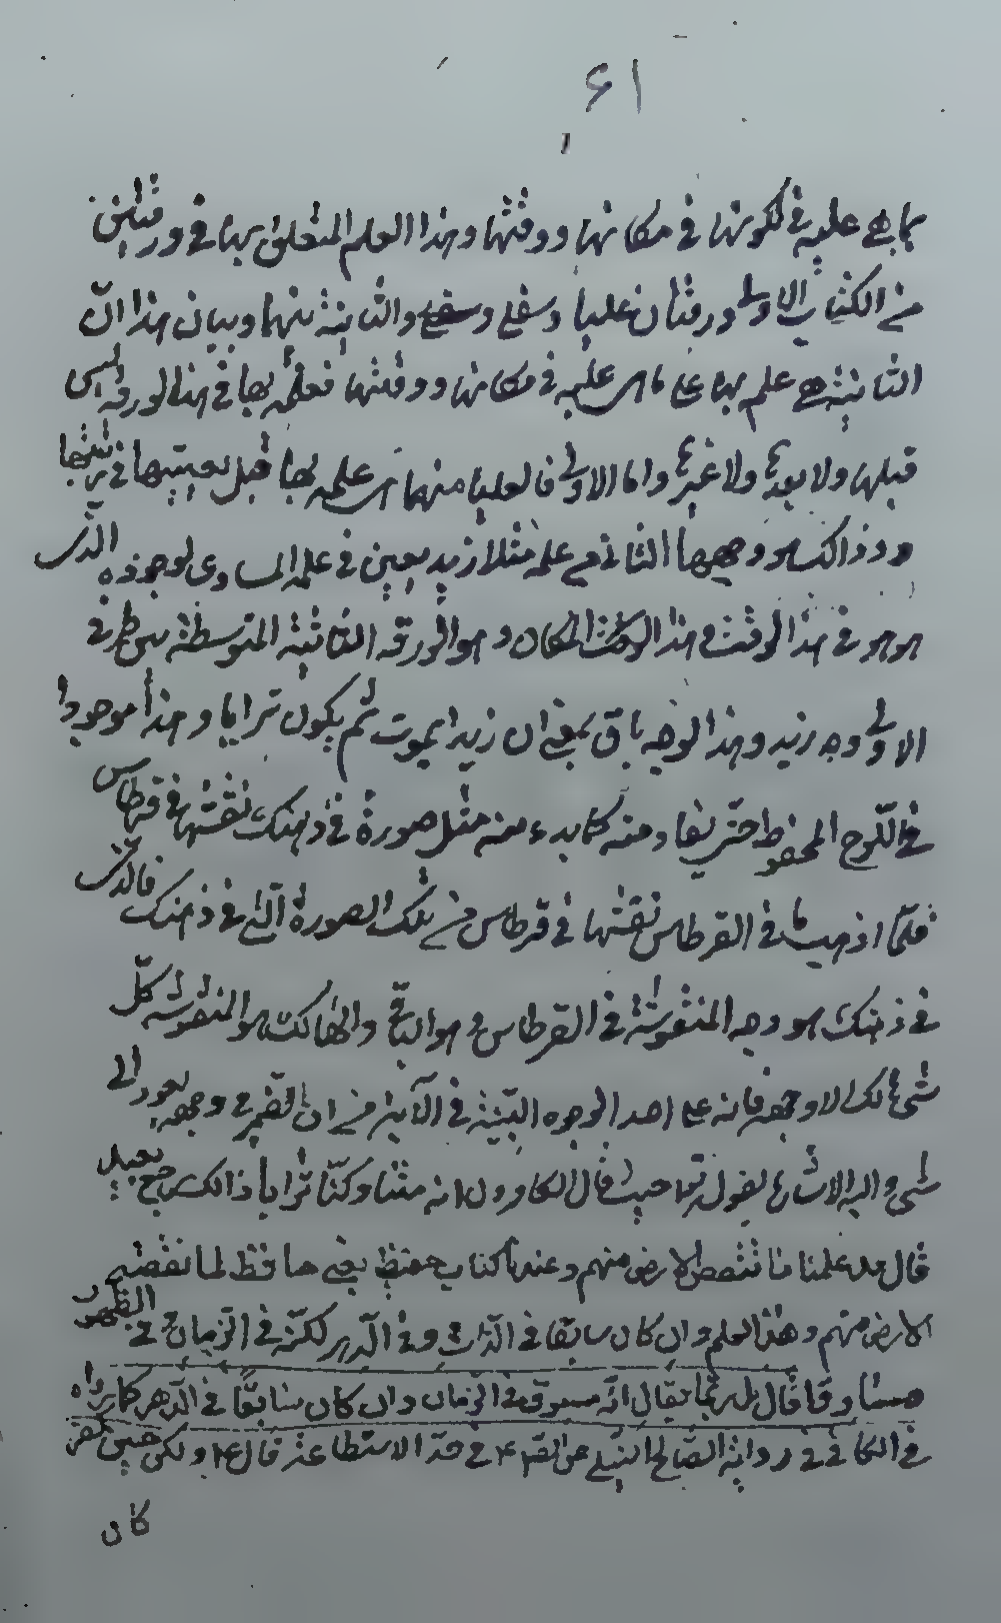 ۶۱
بما هي عليه في كونها في مكانها ووقتها وهذا العلم المتعلق بها في ورقتين
من الكتاب الاولى ورقتان عليا وسفلى والثانية بينهما وبيان هذا انّ
الثانية هي علم بها على ما هي عليه في مكانها ووقتها فعلمه بها في هذه الورقة ليس
قبلها ولا بعدها ولا غيرها واما الاولى فالعليا منهما هي علمه بها قبل
وذلك هو وجهها الثاني علم مثلا زيد بعين في علمه المساوي لوجوده الذي
هو هو في هذا الوقت في هذا المكان وهو الورقة الثانية المتوسطة في
الاولى وجه زيد وهذا الوجه باق بمعنى ان زيدا يموت ثم يكون ترابا وهذا موجود
في اللوح المحفوظ ومنه كما بدء منه مثل صورة في ذهنك نقشتها في قرطاس
فلمّا في القرطاس نقشتها في قرطاس من تلك الصورة الّتي في ذهنك فالذي
في ذهنك هو وجه المنقوشة في القرطاس هو الباقي والهالك هو المنقوشة كلّ
شيء هالك الا وجهه فانه على احد الوجوه في الآية من ان الضمير في وجهه يعود الى
شيء واليه الاشارة بقوله تعالى حيث قال الكافرون ائذا متنا وكنّا ترابا ذلك رجع بعيد
قال قد علمنا ما تنقص الارض منهم وعندنا كتاب حفيظ يعني حافظ لما تنقصه
الارض منهم وهذا العلم وان كان سابقا في الذات وفي الدهر لكنّه في الزمان في الظهور
مساوقا قال بل ربّما يقال انّه مسبوق في الزمان وان كان سابقا في الدهر كما رواه
في الكافي في رواية الصالح النيلي عن الصّ ع في الاستطاعة قال ع ولكن حين كفر
كان